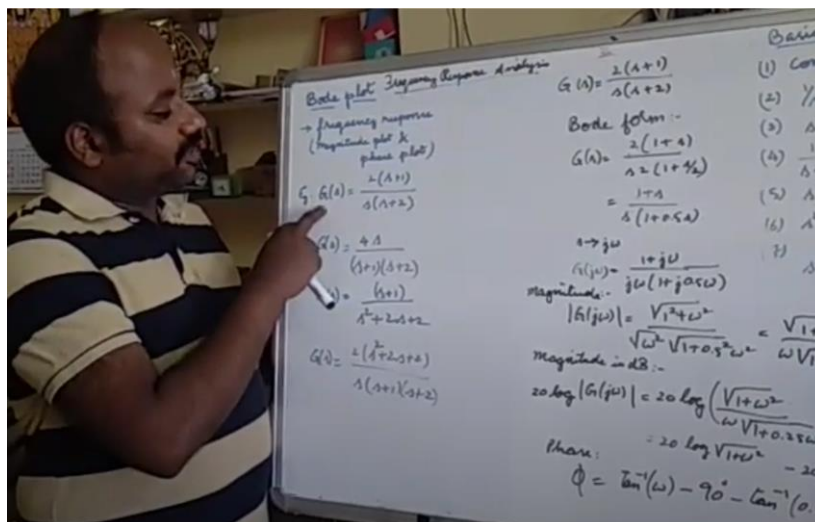 Bode plot Frequency Response Analysis
→ frequency response
(Magnitude plot &
phase plot)
G(s) = 2(s+1) / s(s+2)
G(s) = 4s / (s+1)(s+2)
= (s+1) / s²+2s+2
G(s) = 2(s²+2s+2) / s(s+1)(s+2)
G(s) = 2(s+1) / s(s+2)
Bode form :-
G(s) = 2(1+s) / s2(1+s/2)
= 1+s / s(1+0.5s)
s→jω
G(jω) = 1+jω / jω(1+j0.5ω)
Magnitude:-
|G(jω)| = √1²+ω² / √ω² √1+0.5²ω² = √1+ / ω√1
Magnitude in dB :-
20 log |G(jω)| = 20 log (√1+ω² / ω√1+0.25ω
= 20 log √1+ω² - 20
Phase:
ϕ = Tan⁻¹(ω) - 90° - tan⁻¹(0.
Basic
(1) Con
(2) 1/s
(3) s
(4) 1 / s+
(5) s
(6) s²
7)
s